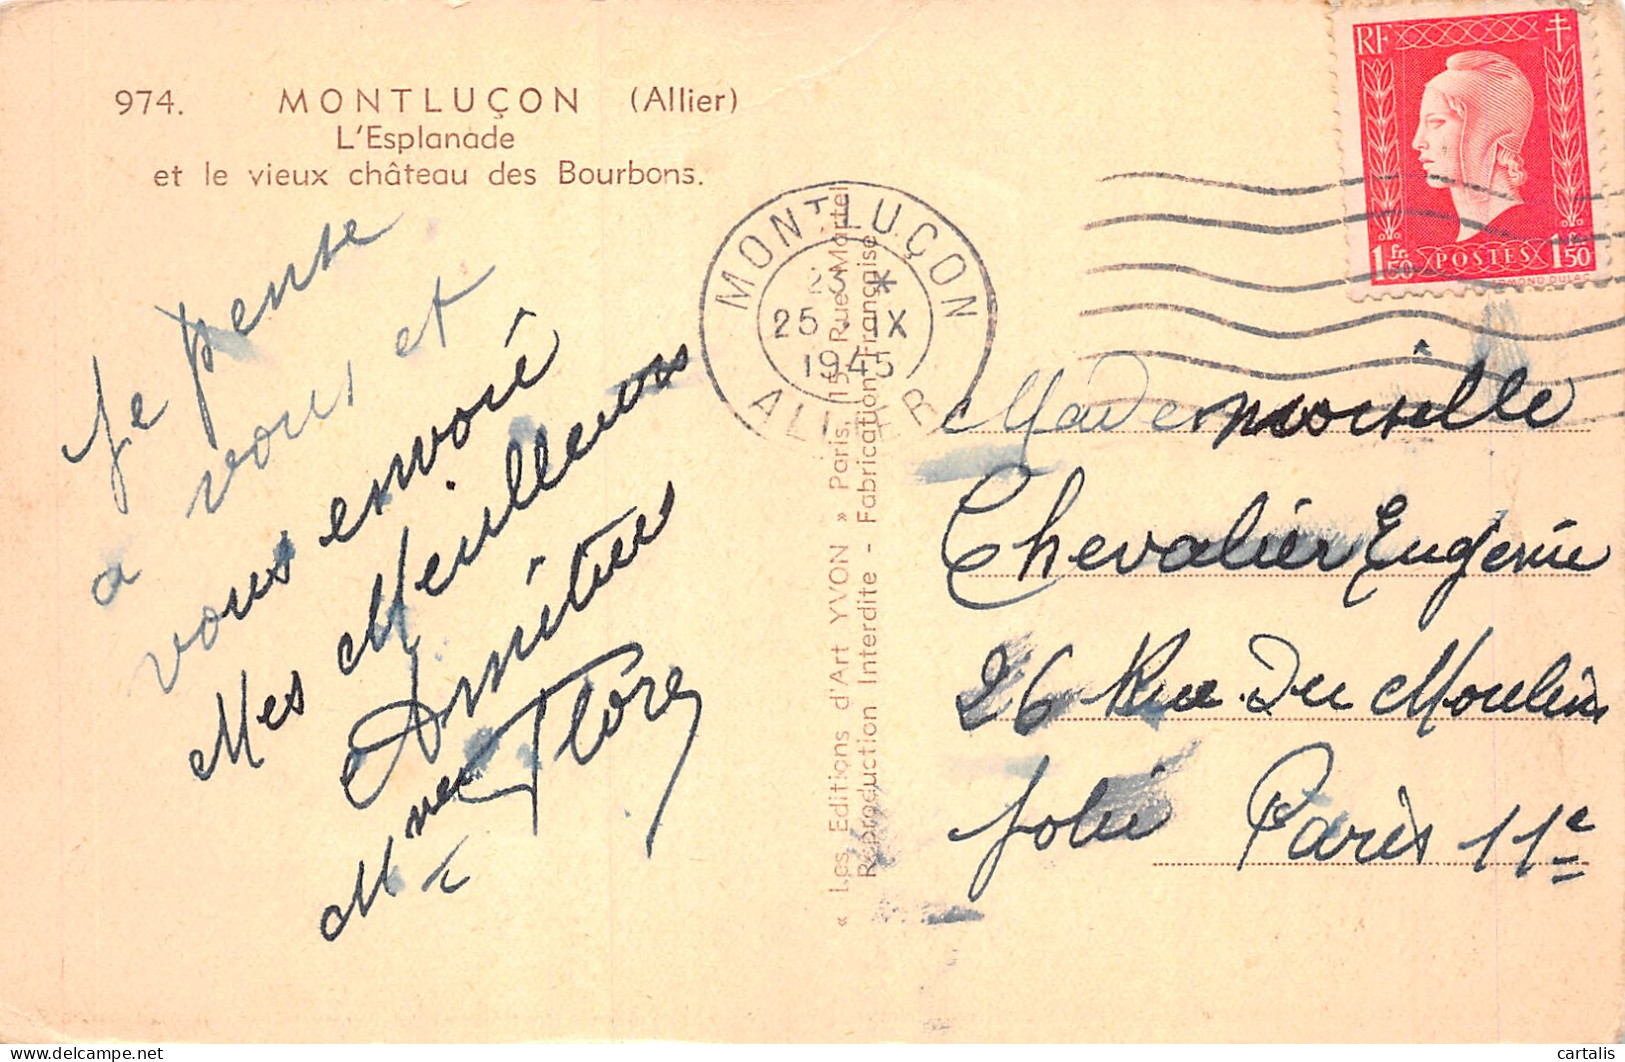 974. MONTLUÇON (Allier)
L'Esplanade
et le vieux château des Bourbons.
Je pense
a vous et
vous envoié
Mes Meilleures
Amitiés
Mme Flore
« Les Editions d'Art YVON » Paris, 15, Rue Martel
Reproduction Interdite - Fabrication Française
MONTLUÇON
23 *
25 - IX
1945
ALLIER
RF
1 fr. 50 POSTES 1 fr. 50
EDMOND DULAC
Mademoiselle
Chevalier Eugenie
26 Rue Du Moulin
Jolie Paris 11e
cartalis